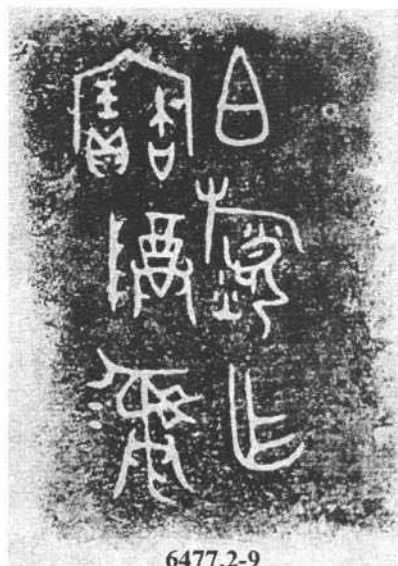 白乍
寶尊彝
6477.2-9